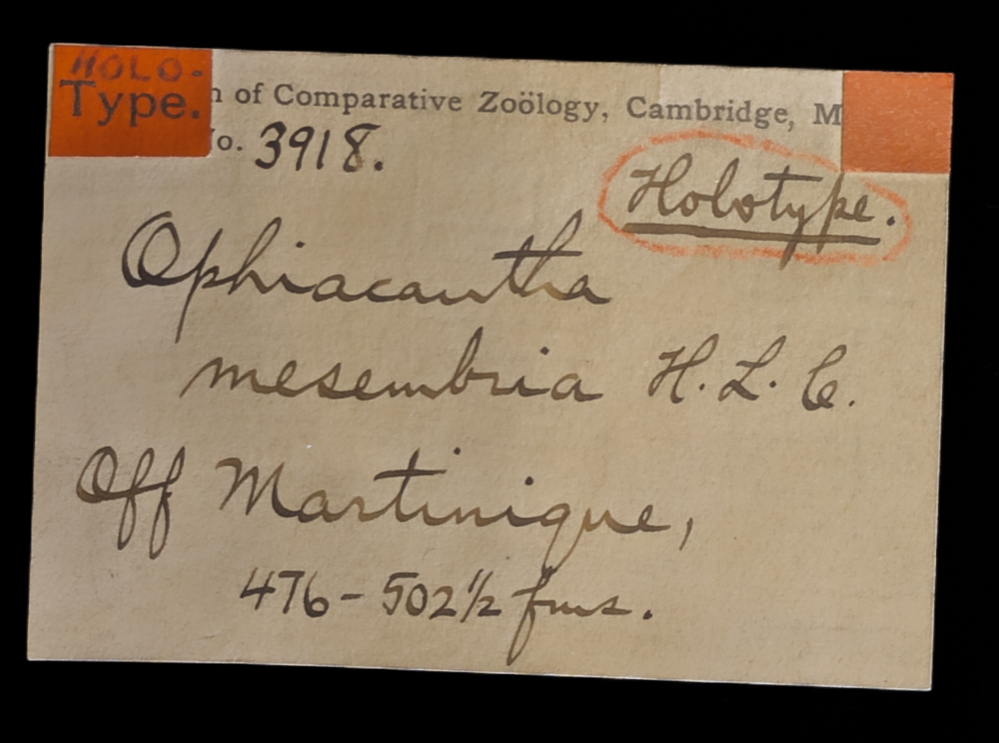 HOLO-
Type.
n of Comparative Zoölogy, Cambridge, M
No. 3918.
Holotype.
Ophiacantha
mesembria H. L. C.
Off Martinique,
476 - 502½ fms.